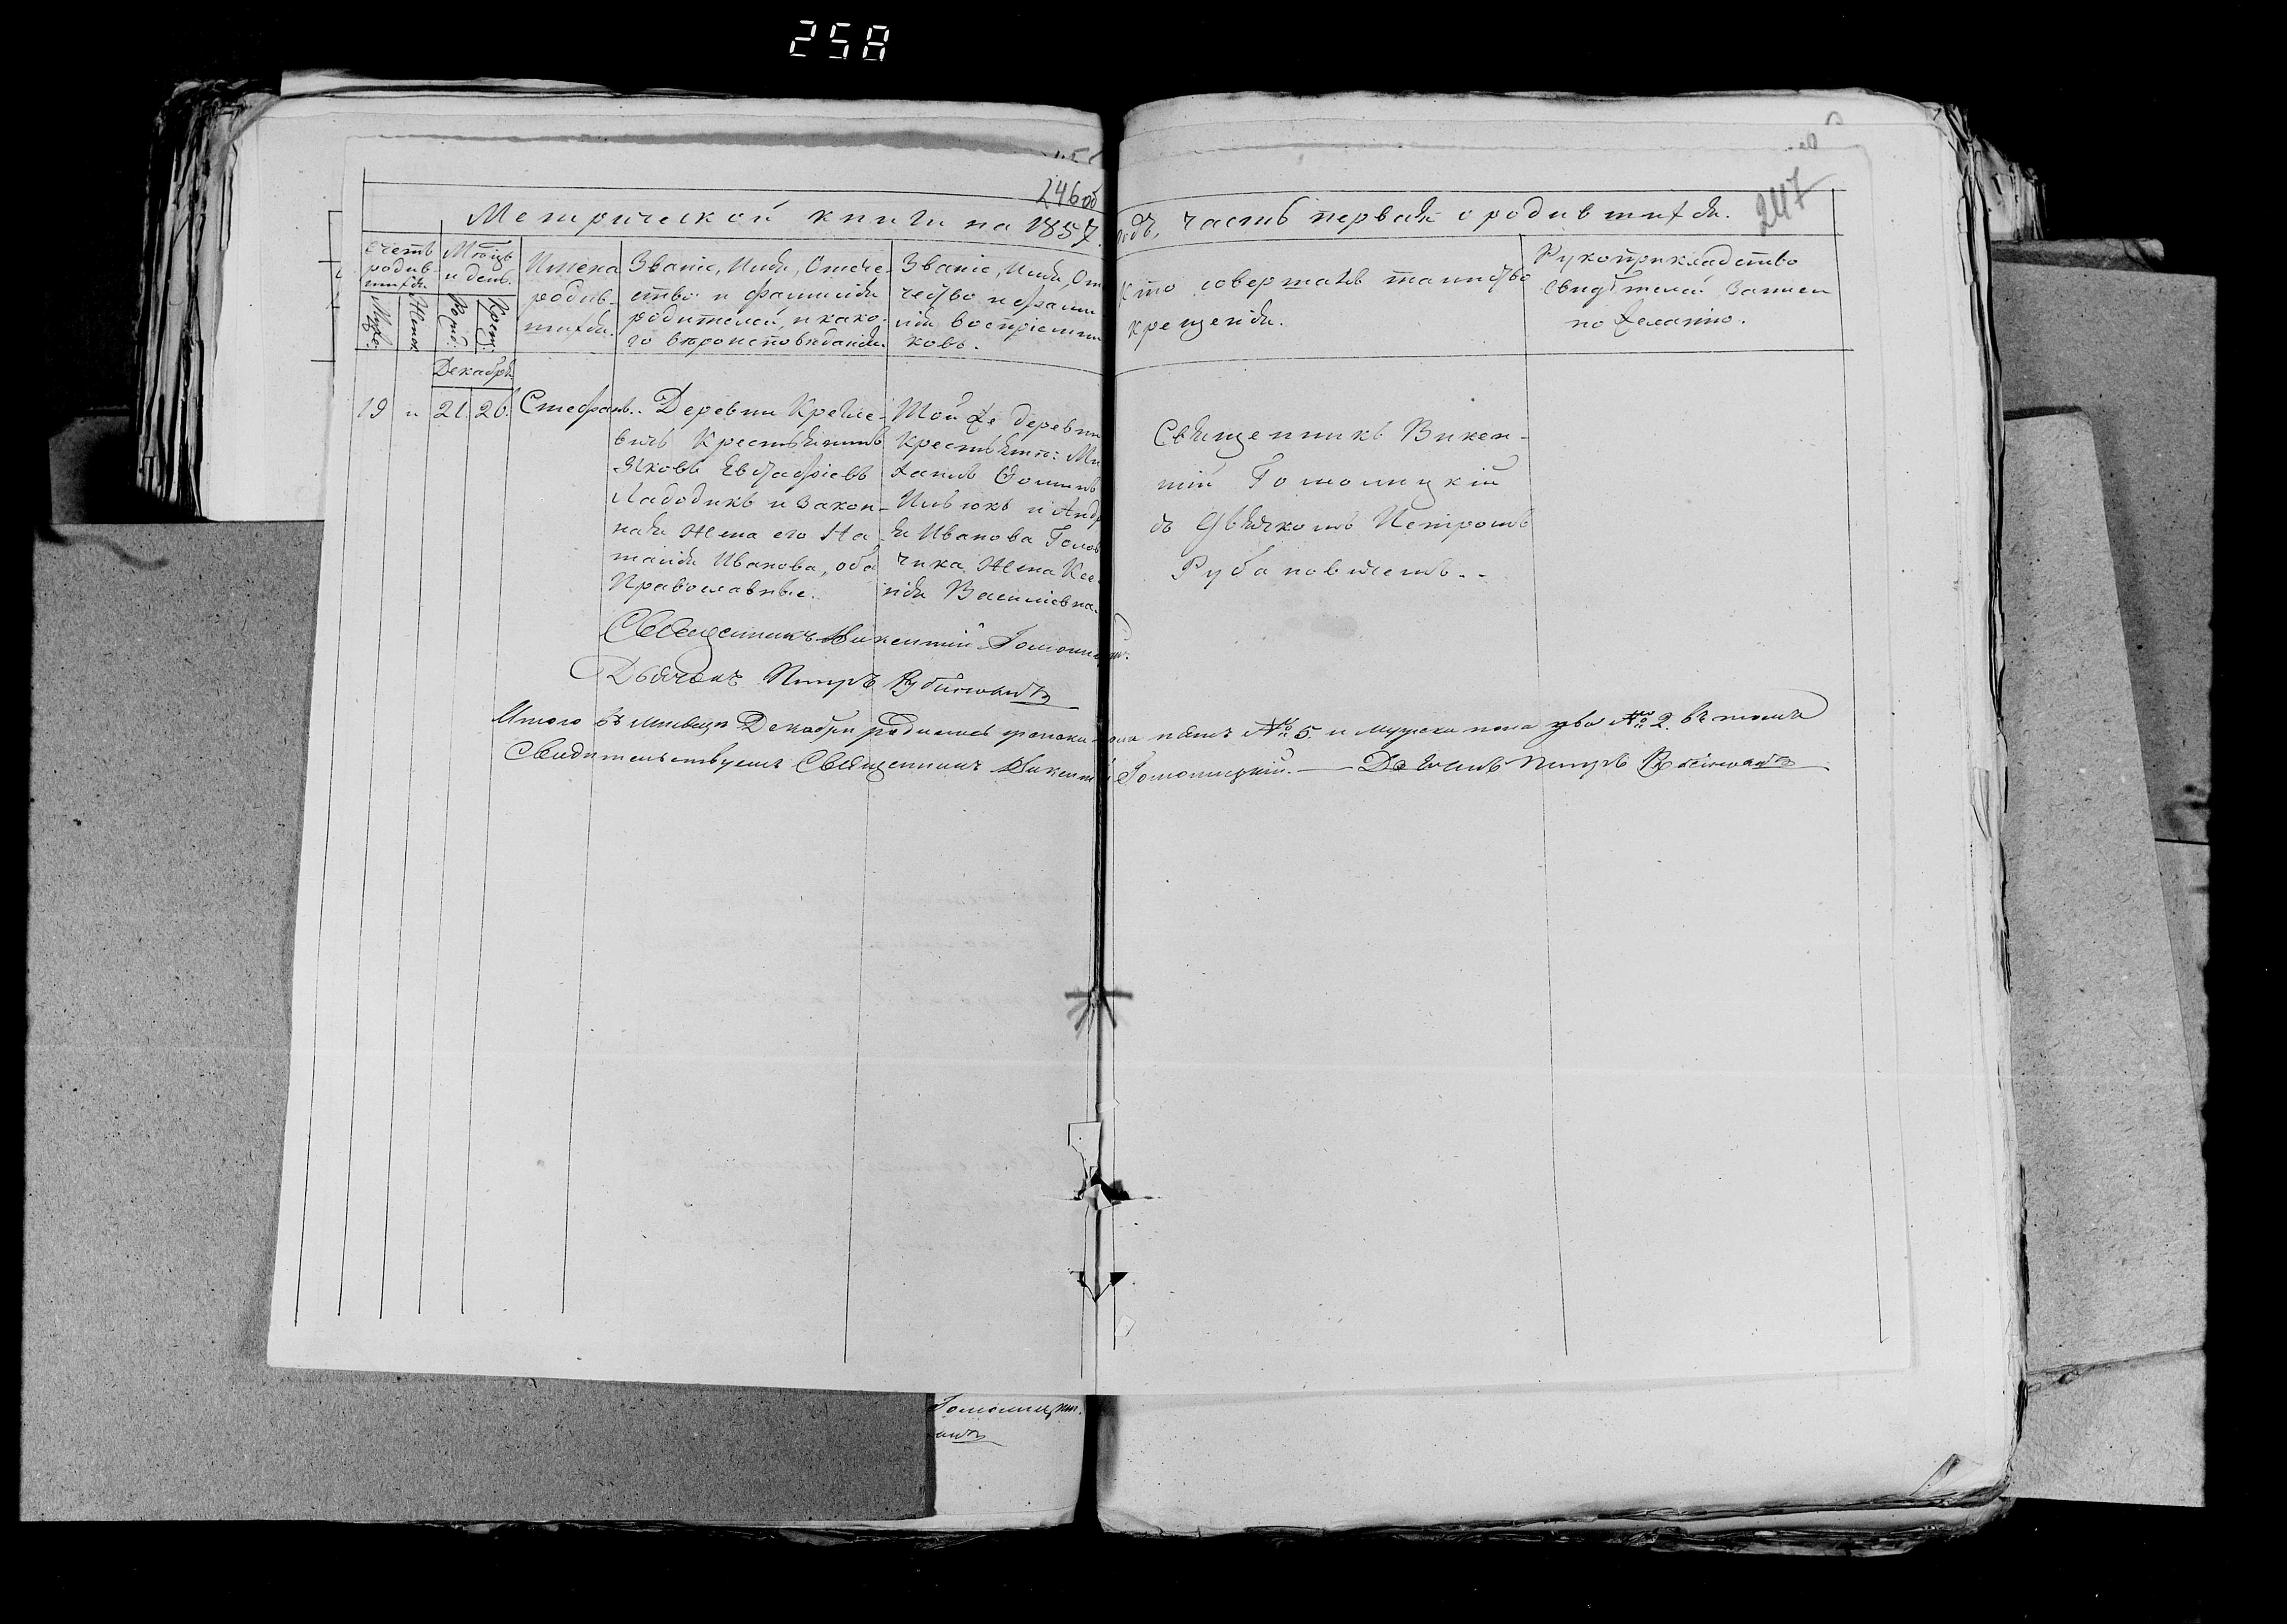 258
246об
247
Метрической книги на 1857. годъ, часть первая о родившихся.
Счетъ родив-шихся.
Мужс:
Женск:
Мѣсяцъ и день.
Рожд:
Крещ:
Имена
родив-
шихся.
Званіе, Имя, Отече-
ство и фамилія
родителей, и како-
го вѣроисповѣданія
Званіе, Имя, От
чество и фами
лія воспріемни
ковъ.
Кто совершалъ таинство
крещенія.
Рукоприкладство
свидѣтелей записи
по желанію.
Декабря
19 " 21. 26. Стефанъ..
Деревни Кревле-
вичь Крестьянинъ
Яковъ Евстафіевъ
Лабодикъ и закон-
ная Жена его На
талія Иванова, оба
Православные.
Той же деревни
Крестьяне: Ми
хаилъ Ѳоминъ
Ивлюкъ и Андр
ея Иванова Голов
чика Жена Ксе-
нія Василіевна.
Священникъ Викен-
тій Гомолицкій
съ Дьячкомъ Петромъ
Рубановичемъ..
Священникъ Викентій Гомолицкій.
Дьячекъ Петръ Рубановичъ
Итого въ мѣсяцѣ Декабрѣ родилось женска пола пять № 5. и мужска пола два № 2. въ томъ
Свидѣтельствуемъ Священникъ Викентій Гомолицкій. — Дьячекъ Петръ Рубановичъ
Гомолицкій.